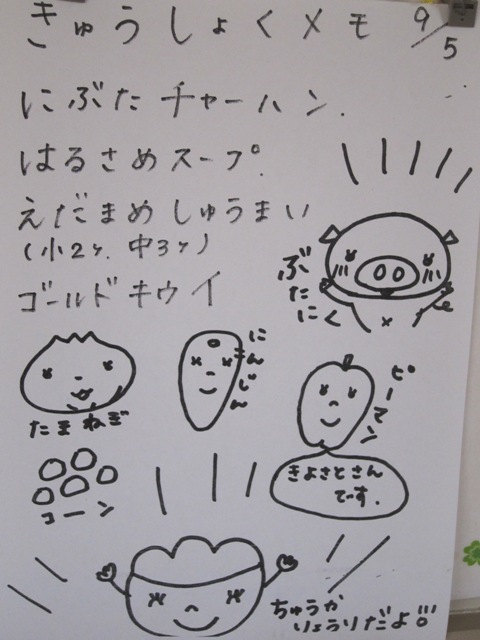 きゅうしょくメモ 9/5
にぶたチャーハン.
はるさめスープ.
えだまめしゅうまい
(小2ヶ. 中3ヶ)
ゴールドキウイ
ぶたにく
にんじん
たまねぎ
ピーマン
きよさとさん
です.
コーン
ちゅうか
りょうりだよ!!